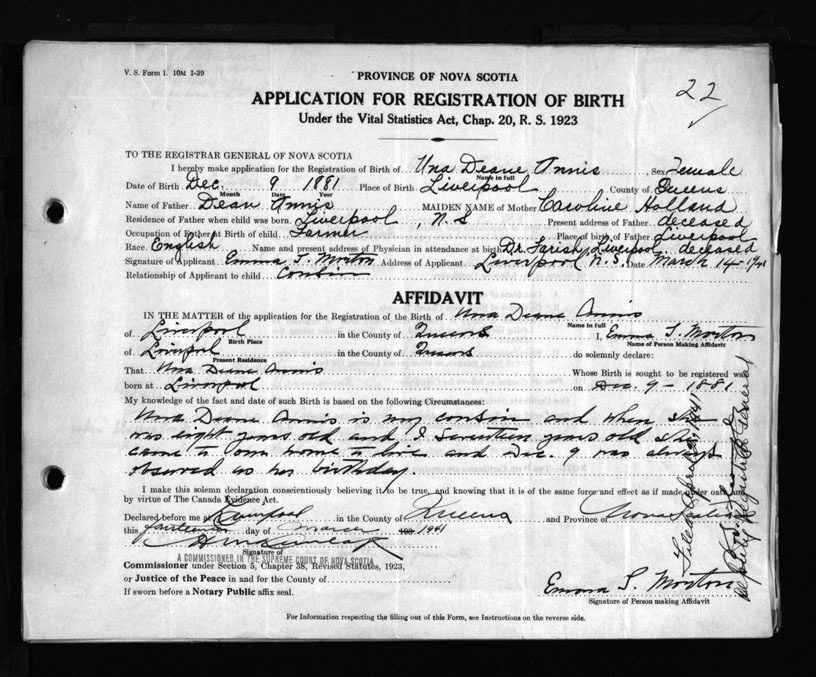 V. S. Form 1. 10M 1-39
PROVINCE OF NOVA SCOTIA
22
APPLICATION FOR REGISTRATION OF BIRTH
Under the Vital Statistics Act, Chap. 20, R. S. 1923
TO THE REGISTRAR GENERAL OF NOVA SCOTIA
I hereby make application for the Registration of Birth of Una Deane Annis Sex Female
Name in full
Date of Birth Dec. 9 1881 Place of Birth Liverpool County of Queens
Month Date Year
Name of Father Dean Annis MAIDEN NAME of Mother Caroline Holland
Residence of Father when child was born Liverpool, N.S Present address of Father deceased
Occupation of Father at Birth of child Farmer Place of birth of Father Liverpool
Race English Name and present address of Physician in attendance at birth Dr. Farish, Liverpool, deceased
Signature of Applicant Emma S. Morton Address of Applicant Liverpool N.S. Date March 14-1941
Relationship of Applicant to child Cousin
AFFIDAVIT
IN THE MATTER of the application for the Registration of the Birth of Una Deane Annis
Name in full
of Liverpool in the County of Queens I, Emma S. Morton
Birth Place Name of Person Making Affidavit
of Liverpool in the County of Queens do solemnly declare:
Present Residence
That Una Deane Annis Whose Birth is sought to be registered was
born at Liverpool on Dec. 9 - 1881
My knowledge of the fact and date of such Birth is based on the following Circumstances:
Una Deane Annis is my cousin and when she
was eight years old and I seventeen years old she
came to our home to live and Dec. 9 was always
observed as her birthday.
I make this solemn declaration conscientiously believing it to be true, and knowing that it is of the same force and effect as if made under oath and
by virtue of The Canada Evidence Act.
Declared before me at Liverpool in the County of Queens and Province of Nova Scotia
this fourteenth day of March 193 1941
Signature of
A COMMISSIONER IN THE SUPREME COURT OF NOVA SCOTIA
Commissioner under Section 5, Chapter 38, Revised Statutes, 1923,
or Justice of the Peace in and for the County of
If sworn before a Notary Public affix seal.
Emma S. Morton
Signature of Person making Affidavit
For Information respecting the filling out of this Form, see Instructions on the reverse side.
Filed
1941
Deputy Registrar General